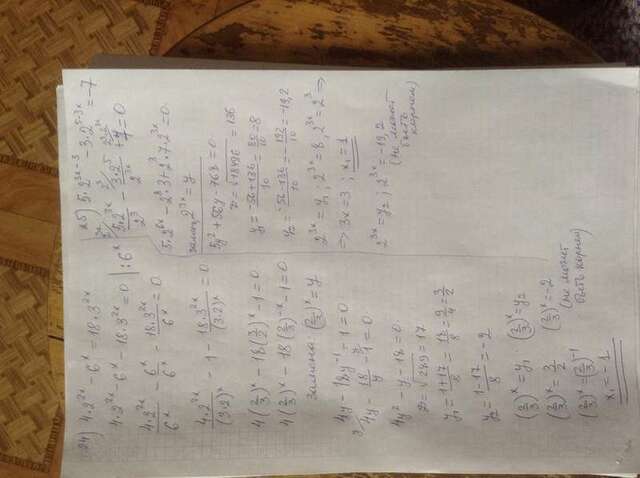 24) 4·2^{2x} - 6^x = 18·3^{2x}
4·2^{2x} - 6^x - 18·3^{2x} = 0 | : 6^x
4·2^{2x}/6^x - 6^x/6^x - 18·3^{2x}/6^x = 0
4·2^{2x}/(3·2)^x - 1 - 18·3^{2x}/(3·2)^x = 0
4(2/3)^x - 18(3/2)^x - 1 = 0
4(2/3)^x - 18(2/3)^{-x} - 1 = 0
замена: (2/3)^x = y
4y - 18y^{-1} - 1 = 0
4y - 18/y - 1 = 0
4y² - y - 18 = 0
D = √289 = 17
y₁ = (1+17)/8 = 18/8 = 9/4
y₂ = (1-17)/8 = -2
(2/3)^x = y₁ ; (2/3)^x = y₂
(2/3)^x = 3/2 (2/3)^x = -2
(2/3)^x = (2/3)^{-1} (не может
быть корнем)
x₁ = -1
25) 5·2^{3x-3} - 3·2^{5-3x} = -7
5·2^{3x}/2^3 - 3·2^5/2^{3x} + 7 = 0
5·2^{6x} - 2^8·3 + 7·2^3·2^{3x} = 0
замена 2^{3x} = y
5y² + 56y - 768 = 0
D = √18496 = 136
y₁ = (-56+136)/10 = 80/10 = 8
y₂ = (-56-136)/10 = -192/10 = -19,2
2^{3x} = y₁ ; 2^{3x} = 8, 2^{3x} = 2^3 ⇒
⇒ 3x = 3 ; x₁ = 1
2^{3x} = y₂ ; 2^{3x} = -19,2
(не может
быть
корнем)